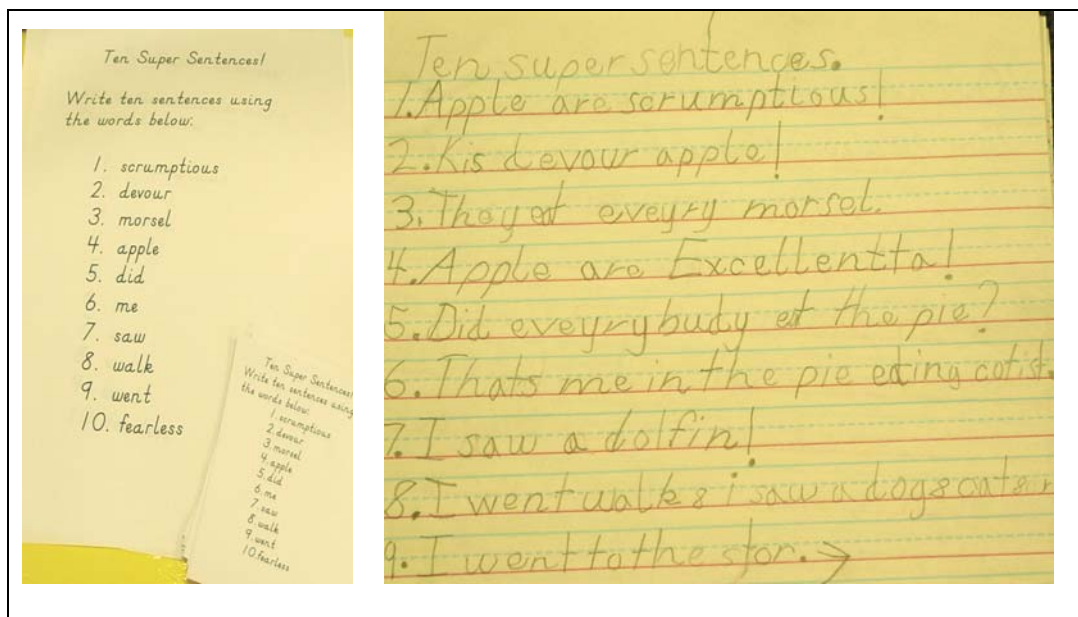 Ten Super Sentences!
Write ten sentences using
the words below:
1. scrumptious
2. devour
3. morsel
4. apple
5. did
6. me
7. saw
8. walk
9. went
10. fearless
Ten Super Sentences!
Write ten sentences using
the words below:
1. scrumptious
2. devour
3. morsel
4. apple
5. did
6. me
7. saw
8. walk
9. went
10. fearless
Ten super sentences.
1. Apple are scrumptious!
2. Kis devour apple!
3. They et eveyry morsel.
4. Apple are Excellentta!
5. Did eveyrybudy et the pie?
6. Thats me in the pie eting cotist.
7. I saw a dolfin!
8. I went walk & i saw a dog & cats &
9. I went to the stor. →